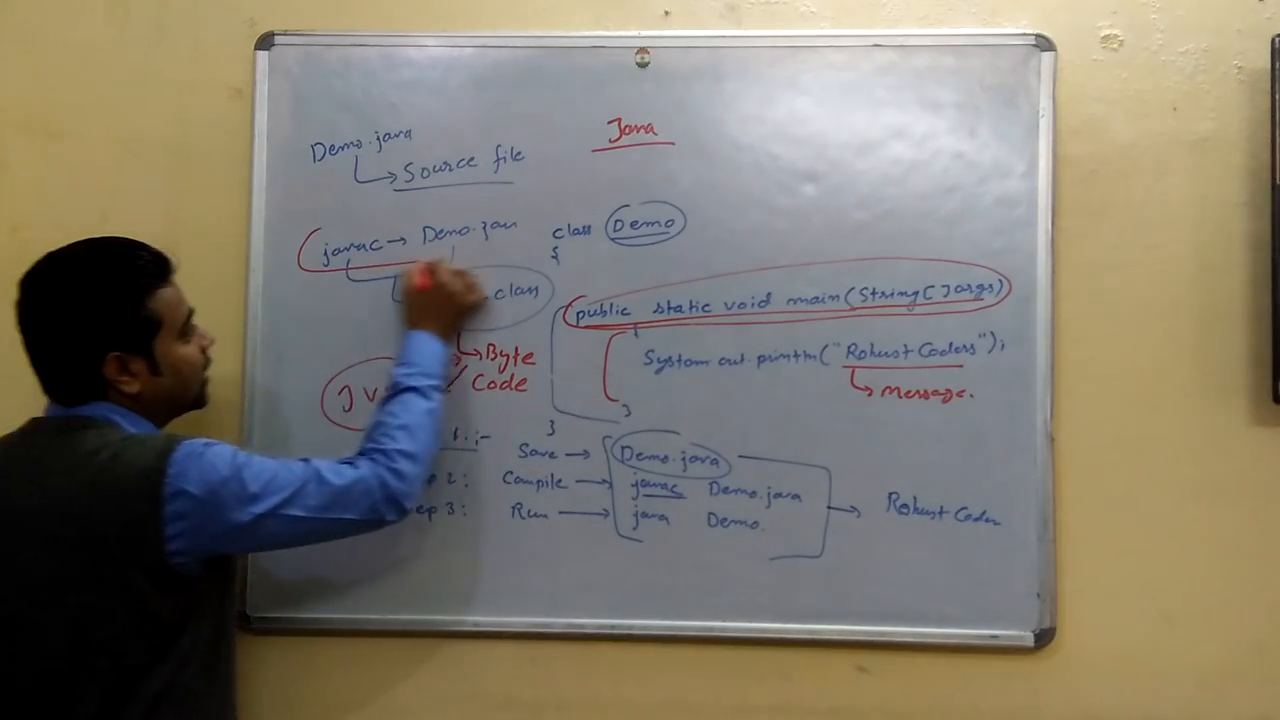 Java
Demo.java
Source file
javac → Demo.jav
class
Byte
Code
J V
class Demo
{
public static void main(String[]args)
{
System.out.println("Robust Coders");
Message.
}
}
1.:-
Save → Demo.java
ep 2: Compile → javac Demo.java
ep 3: Run → java Demo.
→ Robust Coder